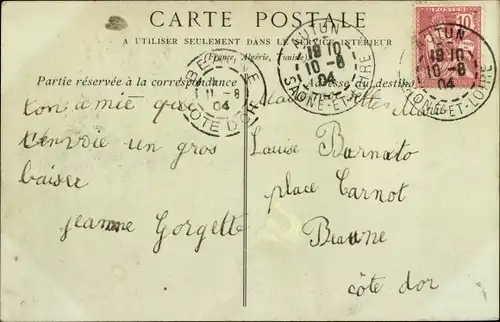 CARTE POSTALE
A UTILISER SEULEMENT DANS LE SERVICE INTÉRIEUR
(France, Algérie, Tunisie)
Partie réservée à la correspondance
Adresse du destin
ton amie qui
t'envoie un gros
baiser
Jeanne Gorgette
Louise Barnato
place Carnot
Beaune
côte dor
AUTUN
19 10
10 -8
04
SAONE-ET-LOIRE
POSTES
10
AUTUN
19 10
10 -8
04
SAONE-ET-LOIRE
11 -8
04
COTE D'OR